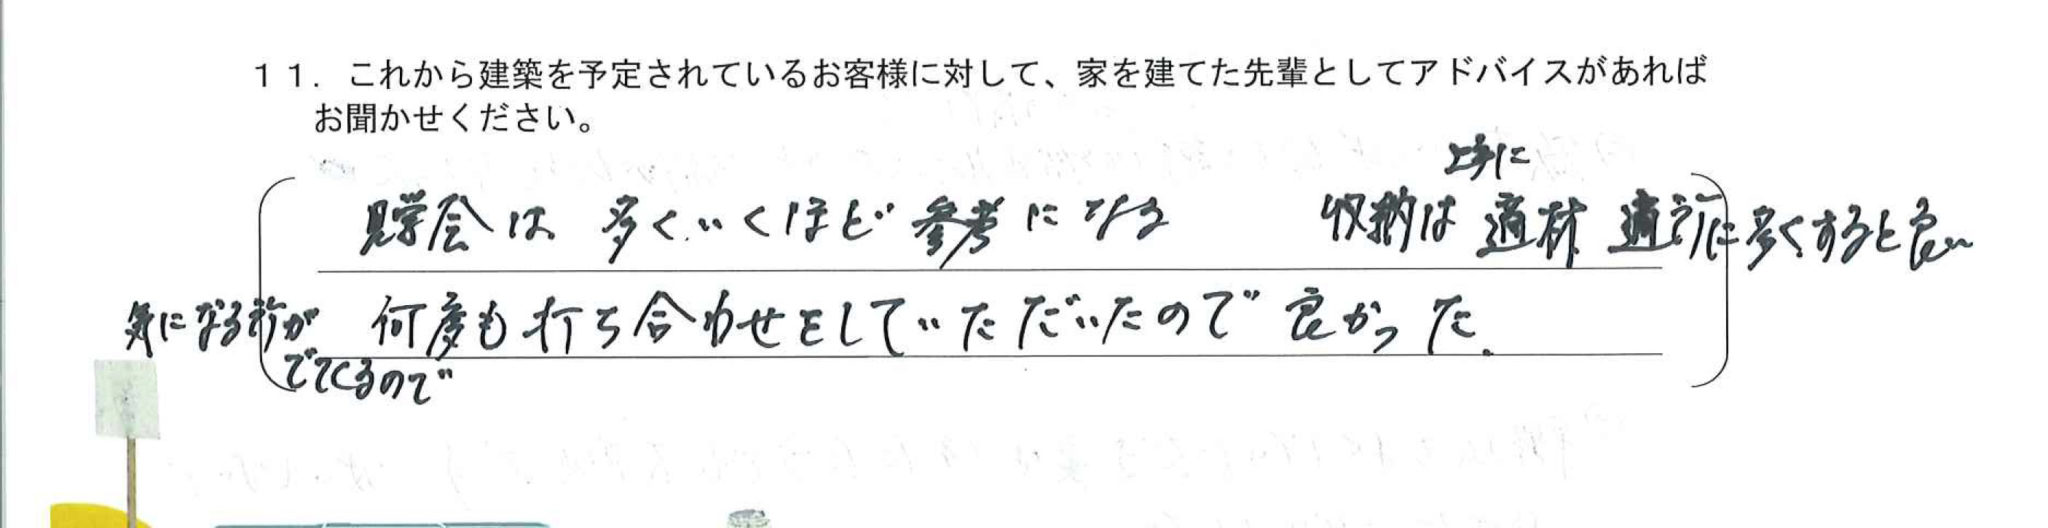 11．これから建築を予定されているお客様に対して、家を建てた先輩としてアドバイスがあれば
お聞かせください。
上手に
見学会は多くいくほど参考になる　収納は適材適所に多くすると良い
気になる所が何度も打ち合わせをしていただいたので良かった.
でてくるので